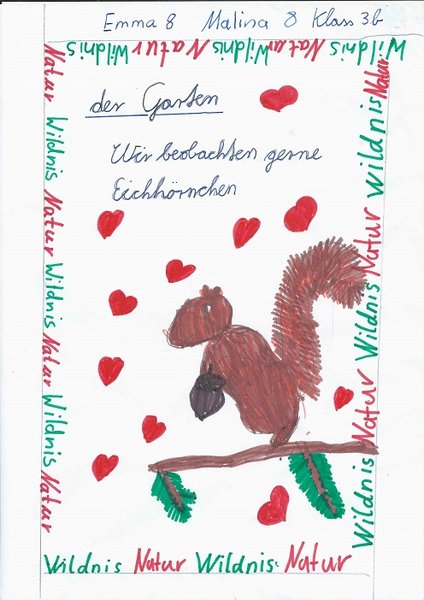 Emma 8 Malina 8 Klass 3b
Wildnis Natur Wildnis Natur Wildnis
der Garten
Wir beobachten gerne
Eichhörnchen
Natur Wildnis Natur Wildnis Natur Wildnis Natur
Wildnis Natur Wildnis Natur Wildnis Natur
Wildnis Natur Wildnis Natur